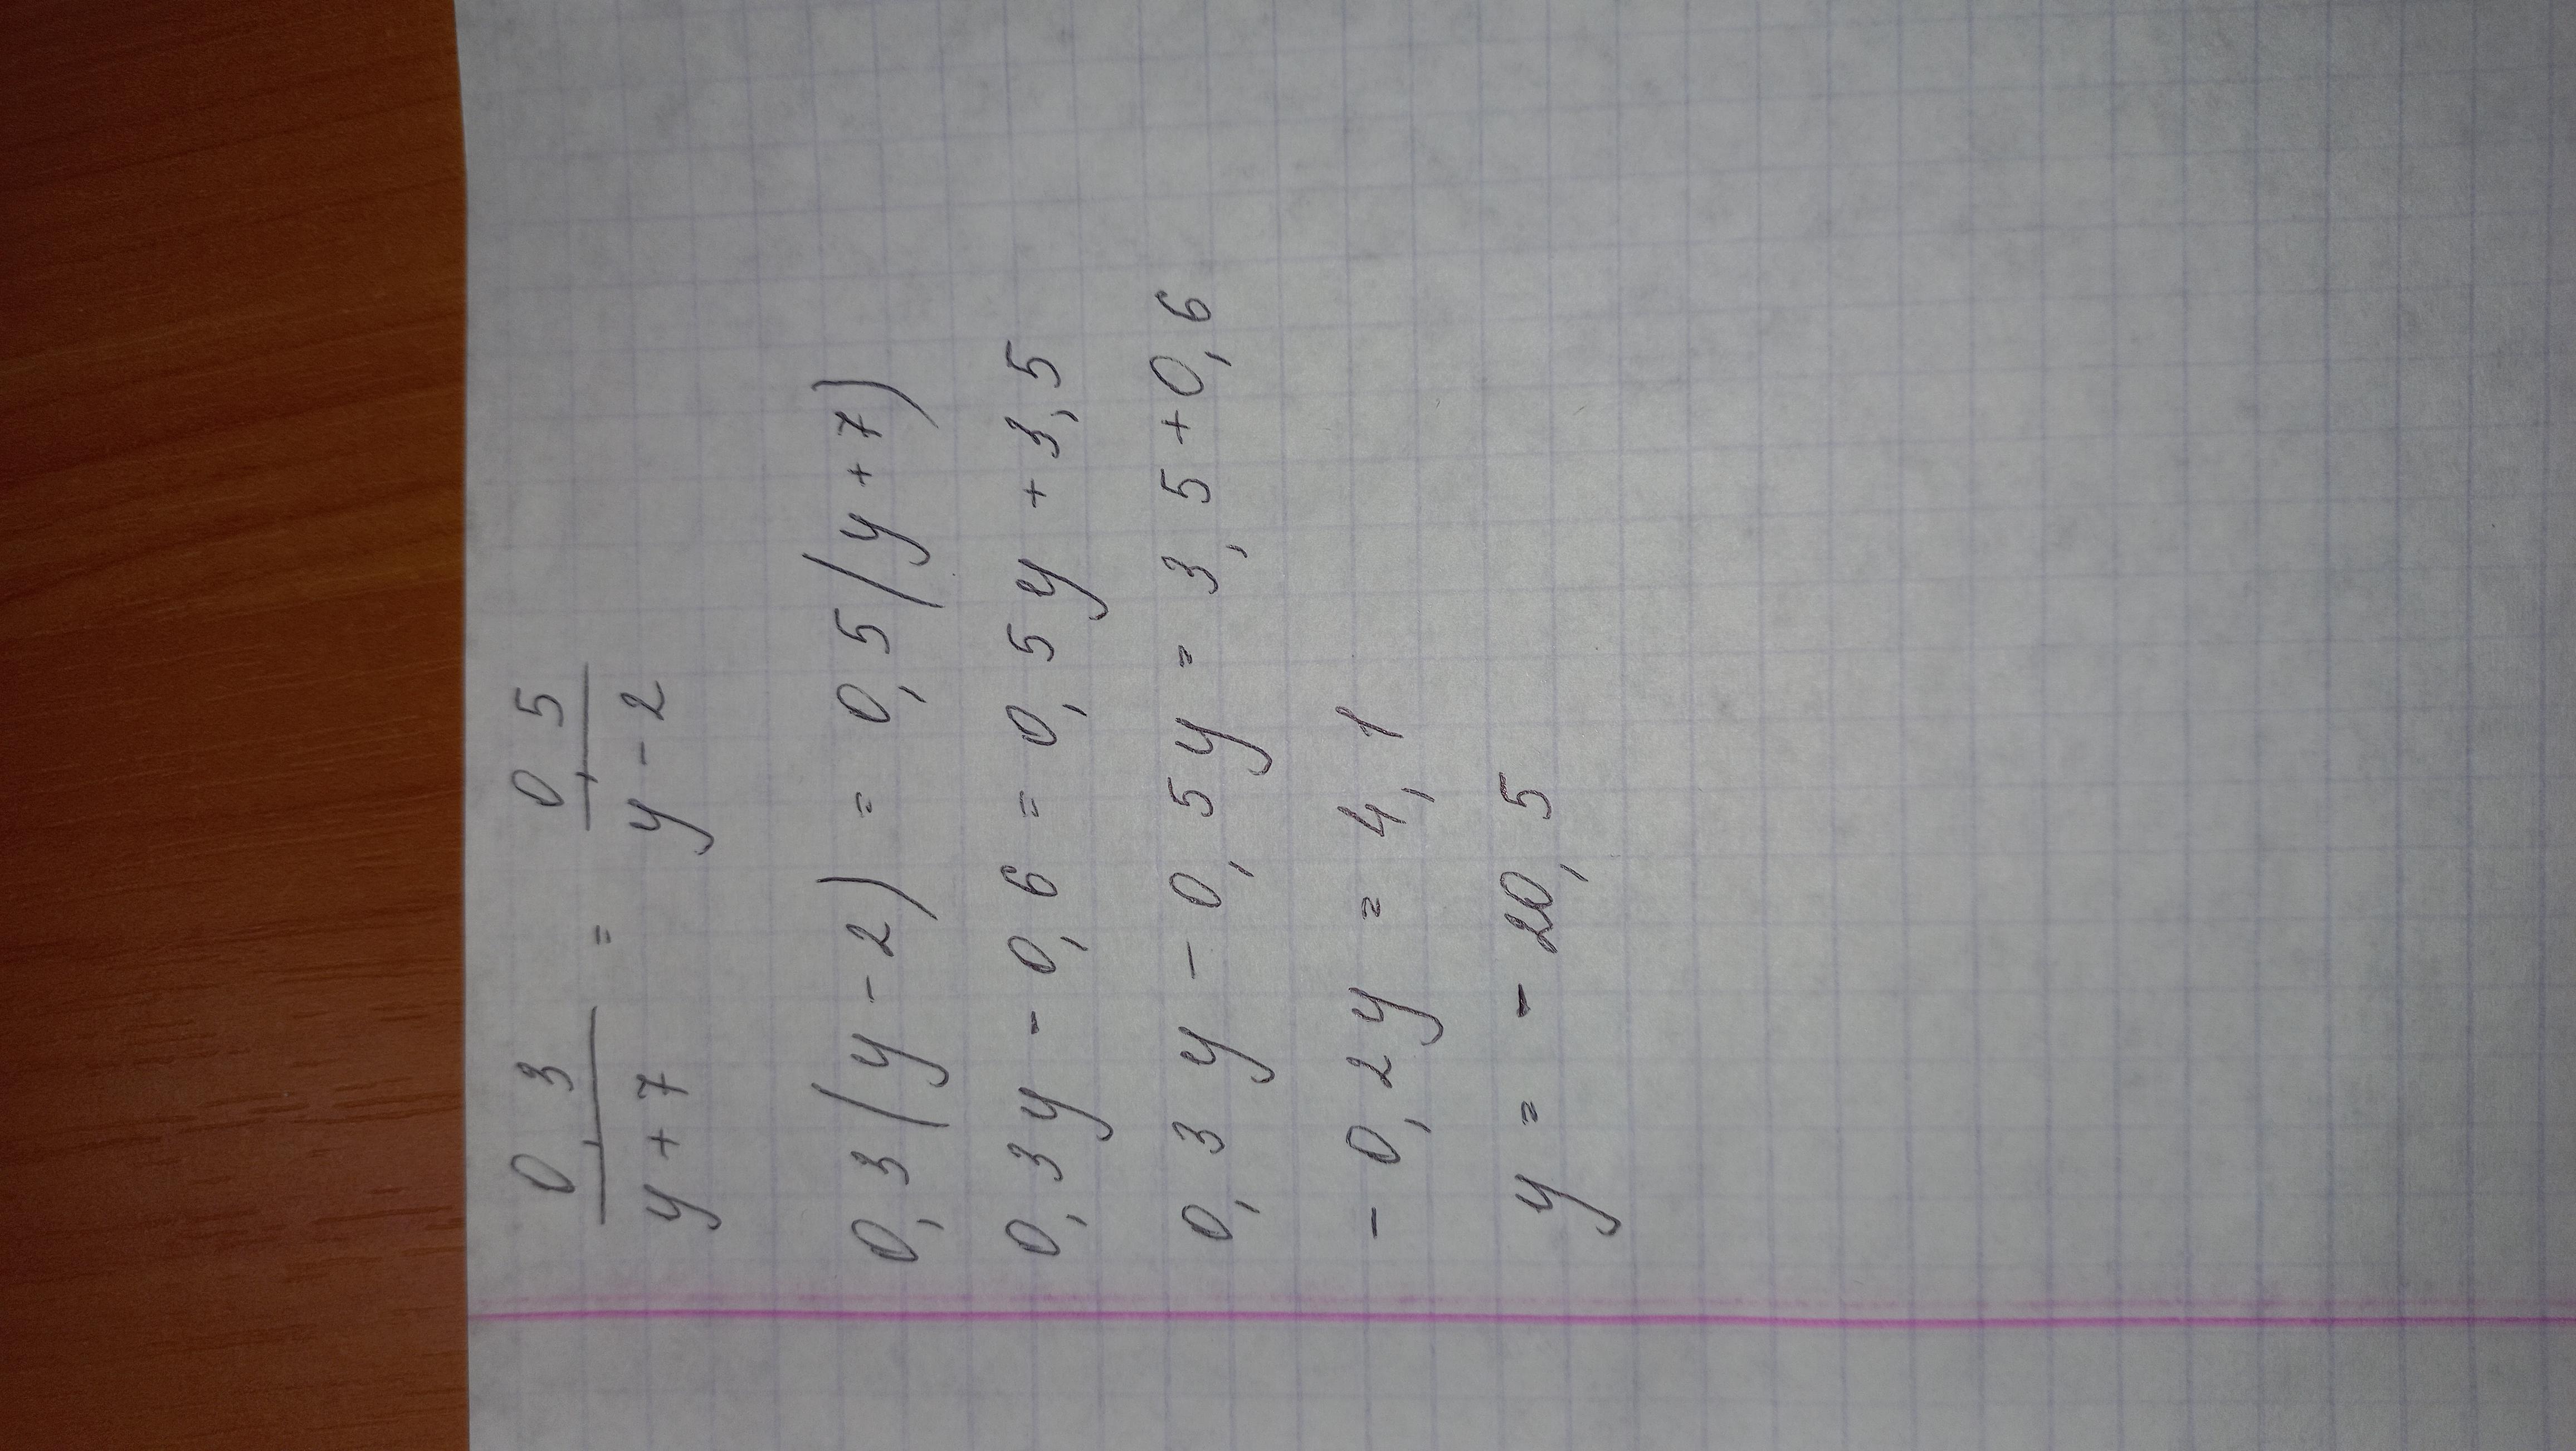 0,3/(y+7) = 0,5/(y-2)
0,3(y-2) = 0,5(y+7)
0,3y-0,6 = 0,5y+3,5
0,3y-0,5y = 3,5+0,6
-0,2y = 4,1
y = -20,5